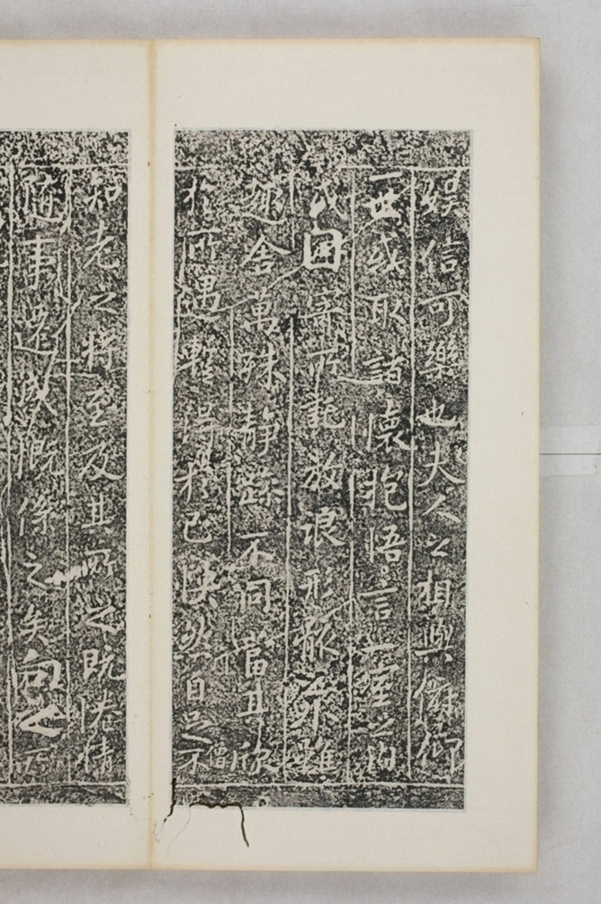 娛信可樂也夫人之相與俯仰
一世或取諸懷抱悟言一室之內
或因寄所託放浪形骸之外雖
趣舍萬殊靜躁不同當其欣
於所遇蹔得於己快然自足不
知老之將至及其所之既惓情
隨事遷感慨係之矣向之所